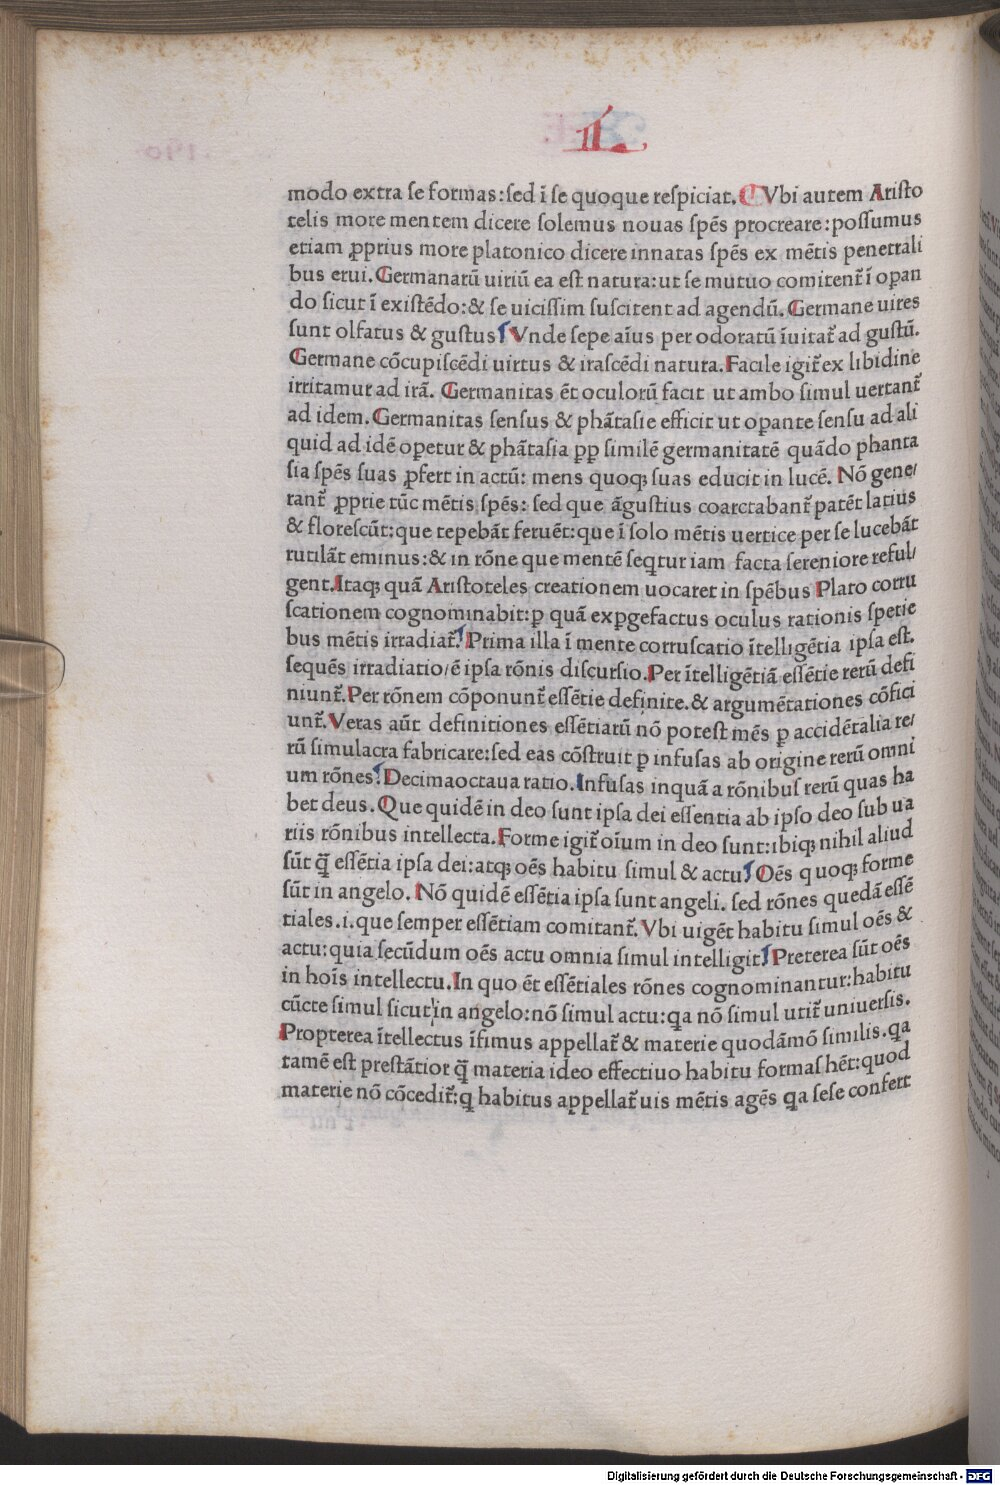 L
modo extra ſe formas:ſed ī ſe quoque reſpiciat. Vbi autem Ariſto
telis more mentem dicere ſolemus nouas ſpēs procreare:poſſumus
etiam ꝓprius more platonico dicere innatas ſpēs ex mētis penetrali
bus erui. Germanarū uiriū ea eſt natura:ut ſe mutuo comitent᷑ ī oꝑan
do ſicut ī exiſtēdo:& ſe uiciſſim ſuſcitent ad agendū. Germane uires
ſunt olfatus & guſtus Vnde ſepe aīus per odoratū īuitat᷑ ad guſtū.
Germane cōcupiſcēdi uirtus & iraſcēdi natura. Facile igit᷑ ex libidine
irritamur ad irā. Germanitas ēt oculorū facit ut ambo ſimul uertant᷑
ad idem. Germanitas ſenſus & phātaſie efficit ut oꝑante ſenſu ad ali
quid ad idē oꝑetur & phātaſia ꝓꝑ ſimilē germanitatē quādo phanta
ſia ſpēs ſuas ꝓfert in actū: mens quoqꝫ ſuas educit in lucē. Nō gene/
rant᷑ ꝓprie tūc mētis ſpēs: ſed que āguſtius coarctabant᷑ patēt latius
& floreſcūt:que tepebāt feruēt:que ī ſolo mētis uertice per ſe lucebāt
rutilāt eminus:& in rōne que mentē ſeqtur iam facta ſereniore reful/
gent. Itaqꝫ quā Ariſtoteles creationem uocaret in ſpēbus Plato corru
ſcationem cognominabit:ꝑ quā exꝑgefactus oculus rationis ſpetie
bus mētis irradiat᷑. Prima illa ī mente corruſcatio ītelligētia ipſa eſt.
ſequēs irradiatio/ē ipſa rōnis diſcurſio. Per ītelligētiā eſſētie rerū defi
niunt᷑. Per rōnem cōponunt᷑ eſſētie definite.& argumētationes cōfici
unt᷑. Veras aūt definitiones eſſētiarū nō poteſt mēs ꝑ accidētalia re/
rū ſimulacra fabricare:ſed eas cōſtruit ꝑ infuſas ab origine rerū omni
um rōnes. Decimaoctaua ratio. Infuſas inquā a rōnibuſ rerū quas ha
bet deus. Que quidē in deo ſunt ipſa dei eſſentia ab ipſo deo ſub ua
riis rōnibus intellecta. Forme igit᷑ oīum in deo ſunt:ibiqꝫ nihil aliud
ſūt q̄ eſſētia ipſa dei:atqꝫ oēs habitu ſimul & actu Oēs quoqꝫ forme
ſūt in angelo. Nō quidē eſſētia ipſa ſunt angeli. ſed rōnes quedā eſſē
tiales.i.que ſemper eſſētiam comitant᷑. Vbi uigēt habitu ſimul oēs &
actu:quia ſecūdum oēs actu omnia ſimul intelligit. Preterea ſūt oēs
in hoīs intellectu. In quo ēt eſſētiales rōnes cognominantur:habitu
cūcte ſimul ſicut in angelo:nō ſimul actu:qa nō ſimul utit᷑ uniuerſis.
Propterea ītellectus īfimus appellat᷑ & materie quodāmō ſimilis.qa
tamē eſt preſtātior q̄ materia ideo effectiuo habitu formaſ hēt:quod
materie nō cōcedit᷑:q habitus appellat᷑ uis mētis agēs qa ſeſe confert
Digitalisierung gefördert durch die Deutsche Forschungsgemeinschaft - DFG